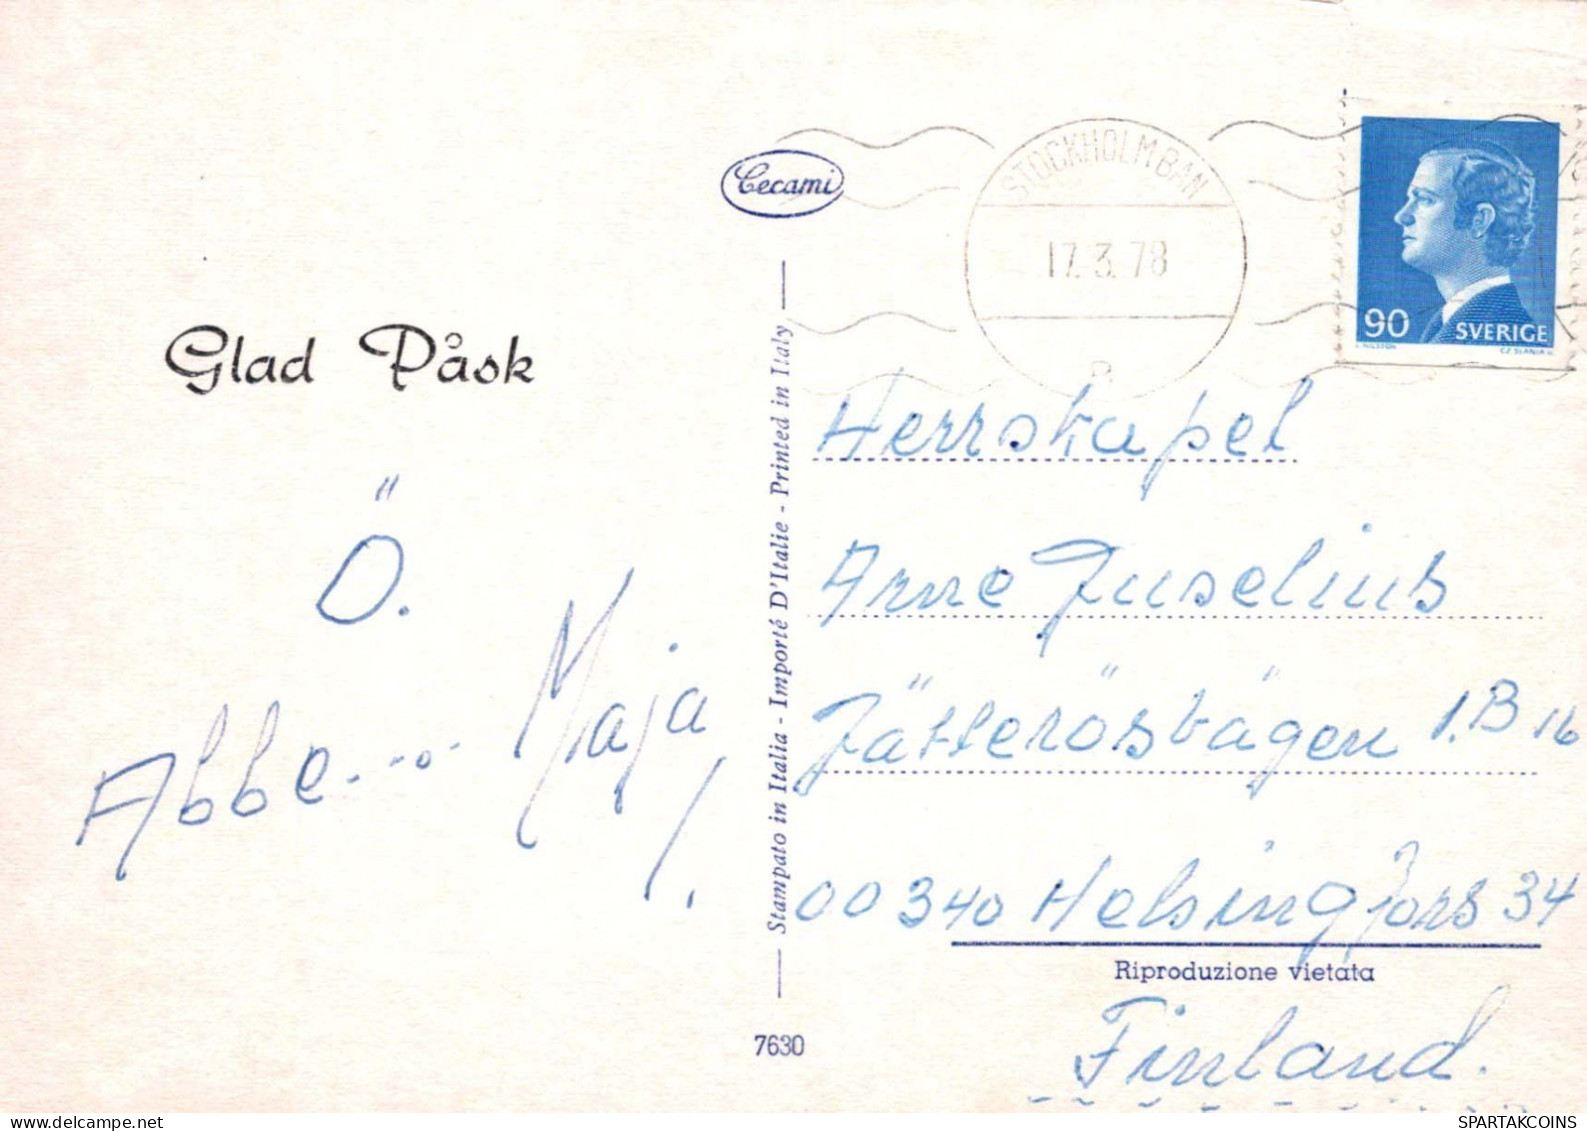 Cecami
STOCKHOLM BAN
17.3.78
90 SVERIGE
Glad Påsk
Ö.
Abbe... Maja
Stampato in Italia - Importé D'Italie - Printed in Italy
Herrskapet
Arne Juselius
Jätterösvägen 1.B 16
00340 Helsingfors 34
Riproduzione vietata
Finland.
7630
SPARTAKCOINS